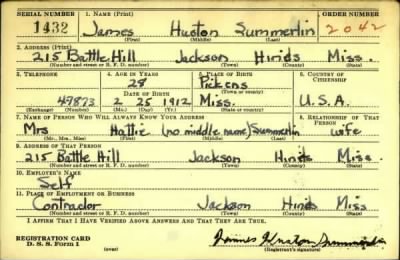 SERIAL NUMBER 1. NAME (Print) ORDER NUMBER
1432 James Huston Summerlin 2042
(First) (Middle) (Last)
2. ADDRESS (Print)
215 Battle Hill Jackson Hinds Miss.
(Number and street or R. F. D. number) (Town) (County) (State)
3. TELEPHONE 4. AGE IN YEARS 5. PLACE OF BIRTH 6. COUNTRY OF CITIZENSHIP
28 Pickens
DATE OF BIRTH (Town or county)
49873 2 25 1912 Miss. U.S.A.
(Exchange) (Number) (Mo.) (Day) (Yr.) (State or country)
7. NAME OF PERSON WHO WILL ALWAYS KNOW YOUR ADDRESS 8. RELATIONSHIP OF THAT PERSON
Mrs Hattie (no middle name) Summerlin wife
(Mr., Mrs., Miss) (First) (Middle) (Last)
9. ADDRESS OF THAT PERSON
215 Battle Hill Jackson Hinds Miss.
(Number and street or R. F. D. number) (Town) (County) (State)
10. EMPLOYER'S NAME
Self
11. PLACE OF EMPLOYMENT OR BUSINESS
Contractor Jackson Hinds Miss
(Number and street or R. F. D. number) (Town) (County) (State)
I AFFIRM THAT I HAVE VERIFIED ABOVE ANSWERS AND THAT THEY ARE TRUE.
REGISTRATION CARD
D. S. S. Form 1 (over) James Huston Summerlin
(Registrant's signature)